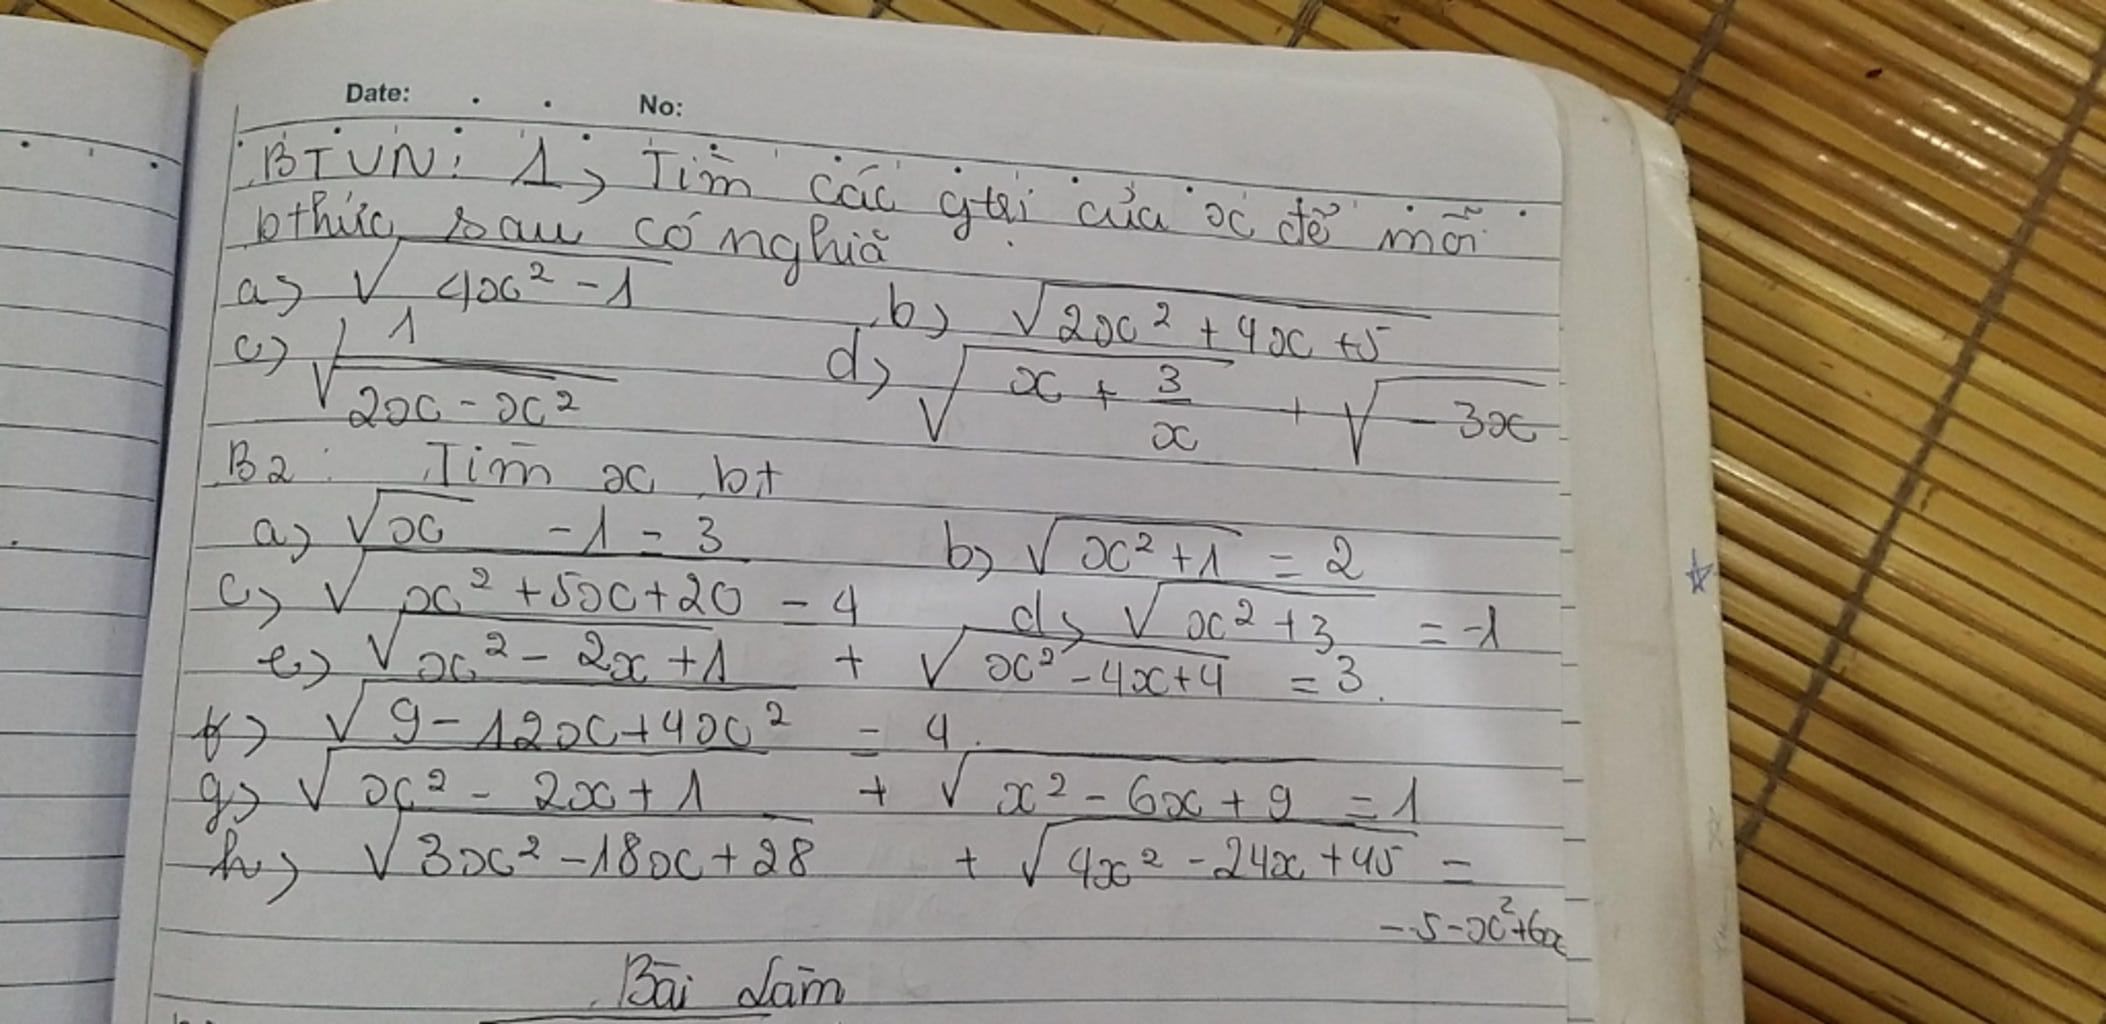 Date: No:
BTVN: 1, Tìm các gtrị của x để mỗi
bthức sau có nghĩa
a, √(4x² - 1) b, √(2x² + 4x + 5)
c, √(1/(2x - x²)) d, √(x + 3/x) + √(-3x)
B2: Tìm x bt
a, √x - 1 = 3 b, √(x² + 1) = 2
c, √(x² + 5x + 20) = 4 d, √(x² + 3) = -1
e, √(x² - 2x + 1) + √(x² - 4x + 4) = 3.
f, √(9 - 12x + 4x²) = 4.
g, √(x² - 2x + 1) + √(x² - 6x + 9) = 1
h, √(3x² - 18x + 28) + √(4x² - 24x + 45) =
-5 - x² + 6x
Bài làm